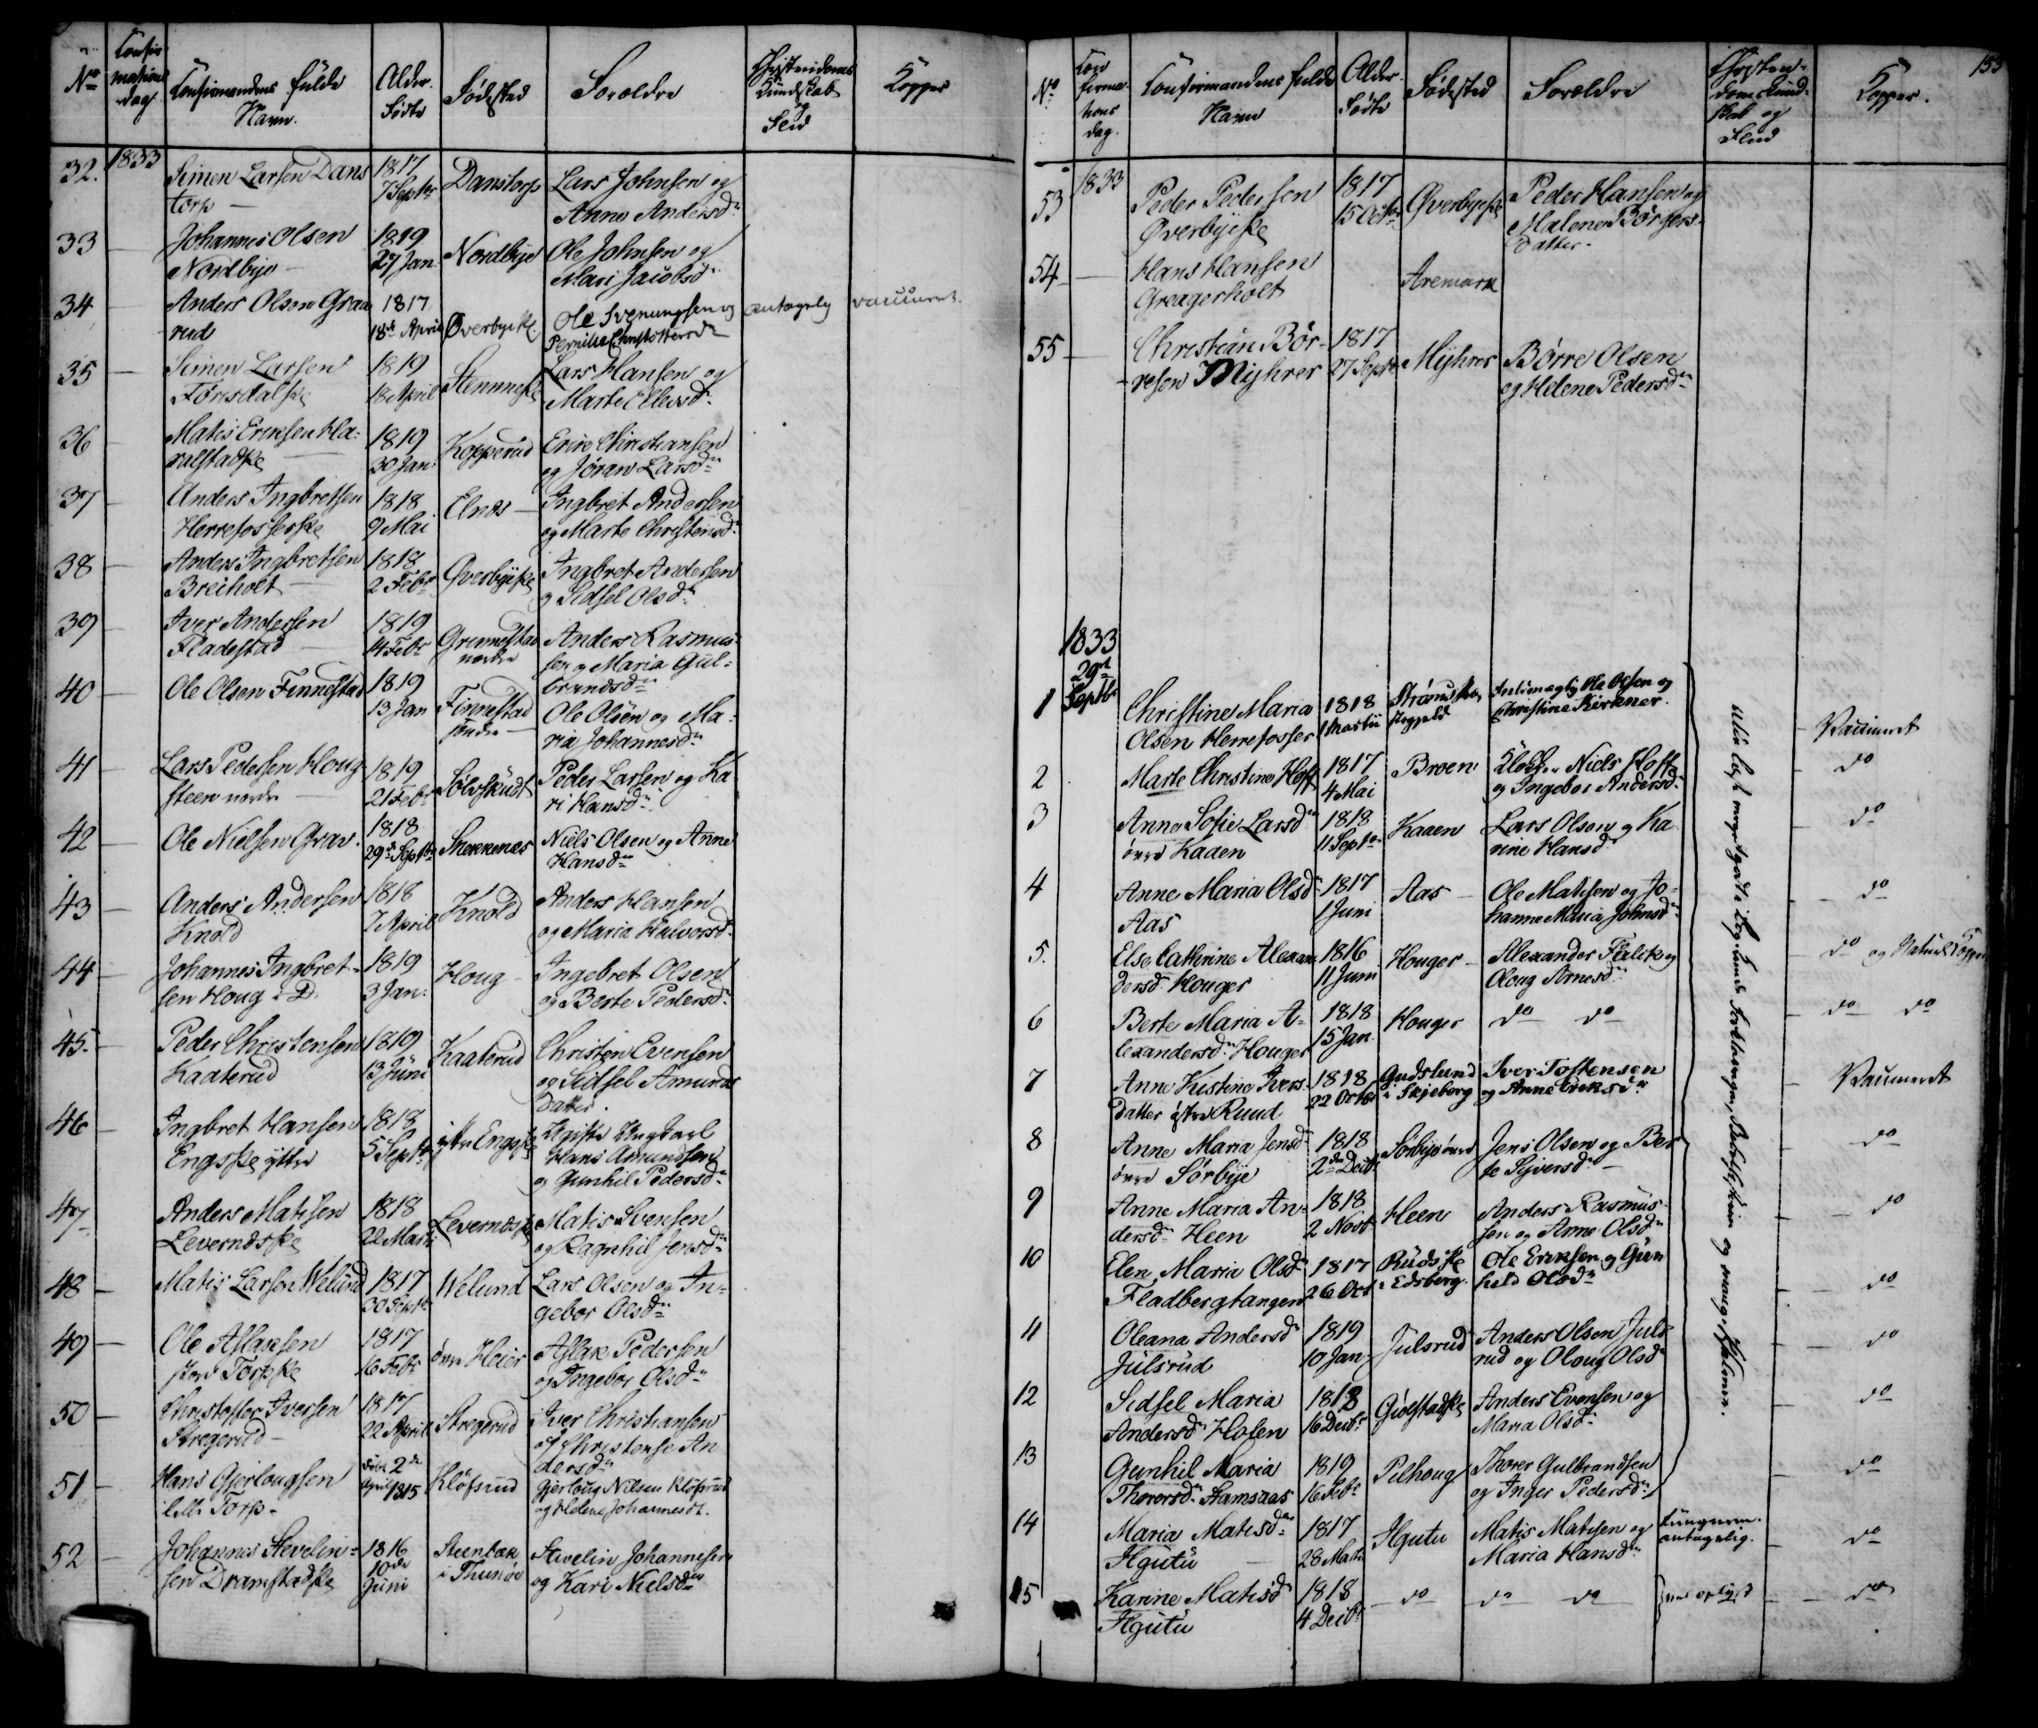 No
Confir
mations
dag
Confirmandens fulde
Navn.
Alder.
Födte
Födested
Forældre
Christendoms
Kundskab
og
Flid
Kopper
32.
1833
Simen Larsen Dans
torp —
1817
7 Septbr
Danstorp
Lars Johnsen og
Anne Andersd.
33 —
Johannes Olsen
Nordbye —
1819
27 Jan.
Nordbye
Ole Johnsen og
Mari Jacobsd.
34 —
Anders Olsen Graa
rud
1817
18de April
Øverbyeske
Ole Svenungsen og
Pernille Christoffersd
antagelig
vaccineret.
35 —
Simen Larsen
Förisdalske
1819
18 April
Stemneske
Lars Hansen og
Marte Ellevsd.
36 —
Matis Ericksen Ha-
ralstadske
1819
30 Jan.
Kopperud
Erick Christiansen
og Jöran Larsd.
37 —
Anders Ingbretsen
Herrefosserske
1818
9 Mai
Elnæs —
Ingbret Andersen
og Marte Christensd.
38 —
Anders Ingbretsen
Breiholt —
1818
2 Febr
Øverbyeske
Ingbret Andersen
og Sidsel Olsd.
39 —
Iver Andersen
Fladestad —
1819
14 Febr
Grimnestad
nordre
Anders Rasmus-
sen og Maria Gul-
brandsd.
40 —
Ole Olsen Finnestad
1819
13 Jan
Finnestad
söndre —
Ole Olsen og Ma-
ria Johannesd.
41 —
Lars Pedersen Houg
steen nordre —
1819
21 Febr
Sölvskudt
Peder Larsen og Ka-
ri Hansd.
42 —
Ole Nielsen Grav.
1818
29de Septbr
Skekkenæs
Niels Olsen og Anne
Hansd.
43 —
Anders Andersen
Knold
1818
7 April
Knold
Anders Hansen
og Maria Halvorsd.
44 —
Johannes Ingbret-
sen Houg i D.
1819
3 Jan.
Houg —
Ingebret Olsen
og Berte Pedersd.
45 —
Peder Christensen
Kaaterud
1819
13 Juni
Kaaterud
Christen Evensen
og Sidsel Amunds
datter.
46 —
Ingbret Hansen
Engske yttre
1818
5 Septbr
yttre Engske
Ugifte Ungkarl
Hans Amundsen
og Gunhil Pedersd.
47 —
Anders Matisen
Leverndske
1818
22 Marti
Leverndske
Matis Svensen
og Ragnhil Jensd.
48 —
Matis Larsen Welund
1817
20 Septbr
Welund
Lars Olsen og In-
gebor Olsd.
49 —
Ole Aslaksen
store Torpske
1817
16 Febr
övre Heier
Aslak Pedersen
og Ingebor Olsd.
50 —
Christoffer Iversen
Stregerud —
1817
22 April
Stregerud
Iver Christiansen
og Christense An
dersd.
51 —
Hans Gjerlougsen
lille Torp.
födt 2de
April 1815
Klöfsrud
Gjerloug Nilsen Klöfsrud
og Helene Johannesdt.
52 —
Johannes Stevelin-
sen Dramstadske
1816
10de
Juni
Steenbæk
i Thunöe
Stevelin Johannesen
og Kari Nielsd.
153
No
Con
firma-
tions
dag.
Confirmandens fulde
Navn
Alder.
Födte
Födested
Forældre
Christen-
doms Kund-
skab og
Flid
Kopper.
53
1833
Peder Pedersen
Øverbyeske
1817
15 Octbr
Øverbyeske
Peder Hansen og
Malene Börgers-
datter.
54 —
Hans Hansen
Graagerholt
Aremark
55 —
Christian Bör-
resen Myhrer
1817
27 Septbr
Myhrer
Börre Olsen
og Helene Pedersd.
1833
29de
Septbr
1
Christine Maria
Olsen Herrefosser
1818
1 Martii
Antimagtig Ole Olsen og
Christine Kirkner.
Vaccineret
2
Marte Christine Hoff
1817
4 Mai
Broen
Niels Hoff
og Ingebor Andersd.
do
3
Anne Sofie Larsd
övre Kaaen
1818
11 Septbr
Kaaen
Lars Olsen og Ka
rine Hansd
do
4
Anne Maria Olsd
Aas
1817
1 Juni
Aas —
Ole Matisen og Jo-
hanne Maria Johnsd.
do
5.
Else Cathrine Alexan
dersd. Houger
1816
11 Juni
Houger —
Alexander Falck og
Oloug Arnesd.
do og Naturl. Kopper
6
Berte Maria A-
lexandersd. Houger
1818
15 Jan.
Houger
do do
do do
7
Anne Kistine Ivers
datter östre Ruud
1818
22 Octbr
Gudslund
i Skjeberg
Iver Toftensen
og Anne Ericksd.
Vaccineret
8
Anne Maria Jensd
övre Sörbye
1818
2de Decbr
Sörbye övre
Jens Olsen og Ber
te Syversd. —
do
9
Anne Maria An-
dersd. Heen
1818
2 Novb
Heen
Anders Rasmus-
sen og Anne Olsd.
do
10
Elen Maria Olsd
Fladbergtangen
1817
26 Oct
Rudsske
i Edsberg.
Ole Ericksen og Gun
hild Olsd.
do
11
Oleana Andersd
Julsrud
1819
10 Jan.
Julsrud
Anders Olsen Juls
rud og Oloug Olsd
do
12
Sidsel Maria
Andersd Holen
1818
16 Decbr
Giölstadske
Anders Evensen og
Maria Olsd.
do
13
Gunhil Maria
Thorersd. Stamsaas
1819
16 Febr
Pelhoug
Thorer Gulbrandsen
og Inger Pedersd.
do
14
Maria Matisd.
Hgutu
1817
28 Marti
Hgutu
Matis Matisen og
Maria Hansd.
antagelig.
do
15
Karine Matisd
Hgutu
1818
4 Decbr
do
do do
do